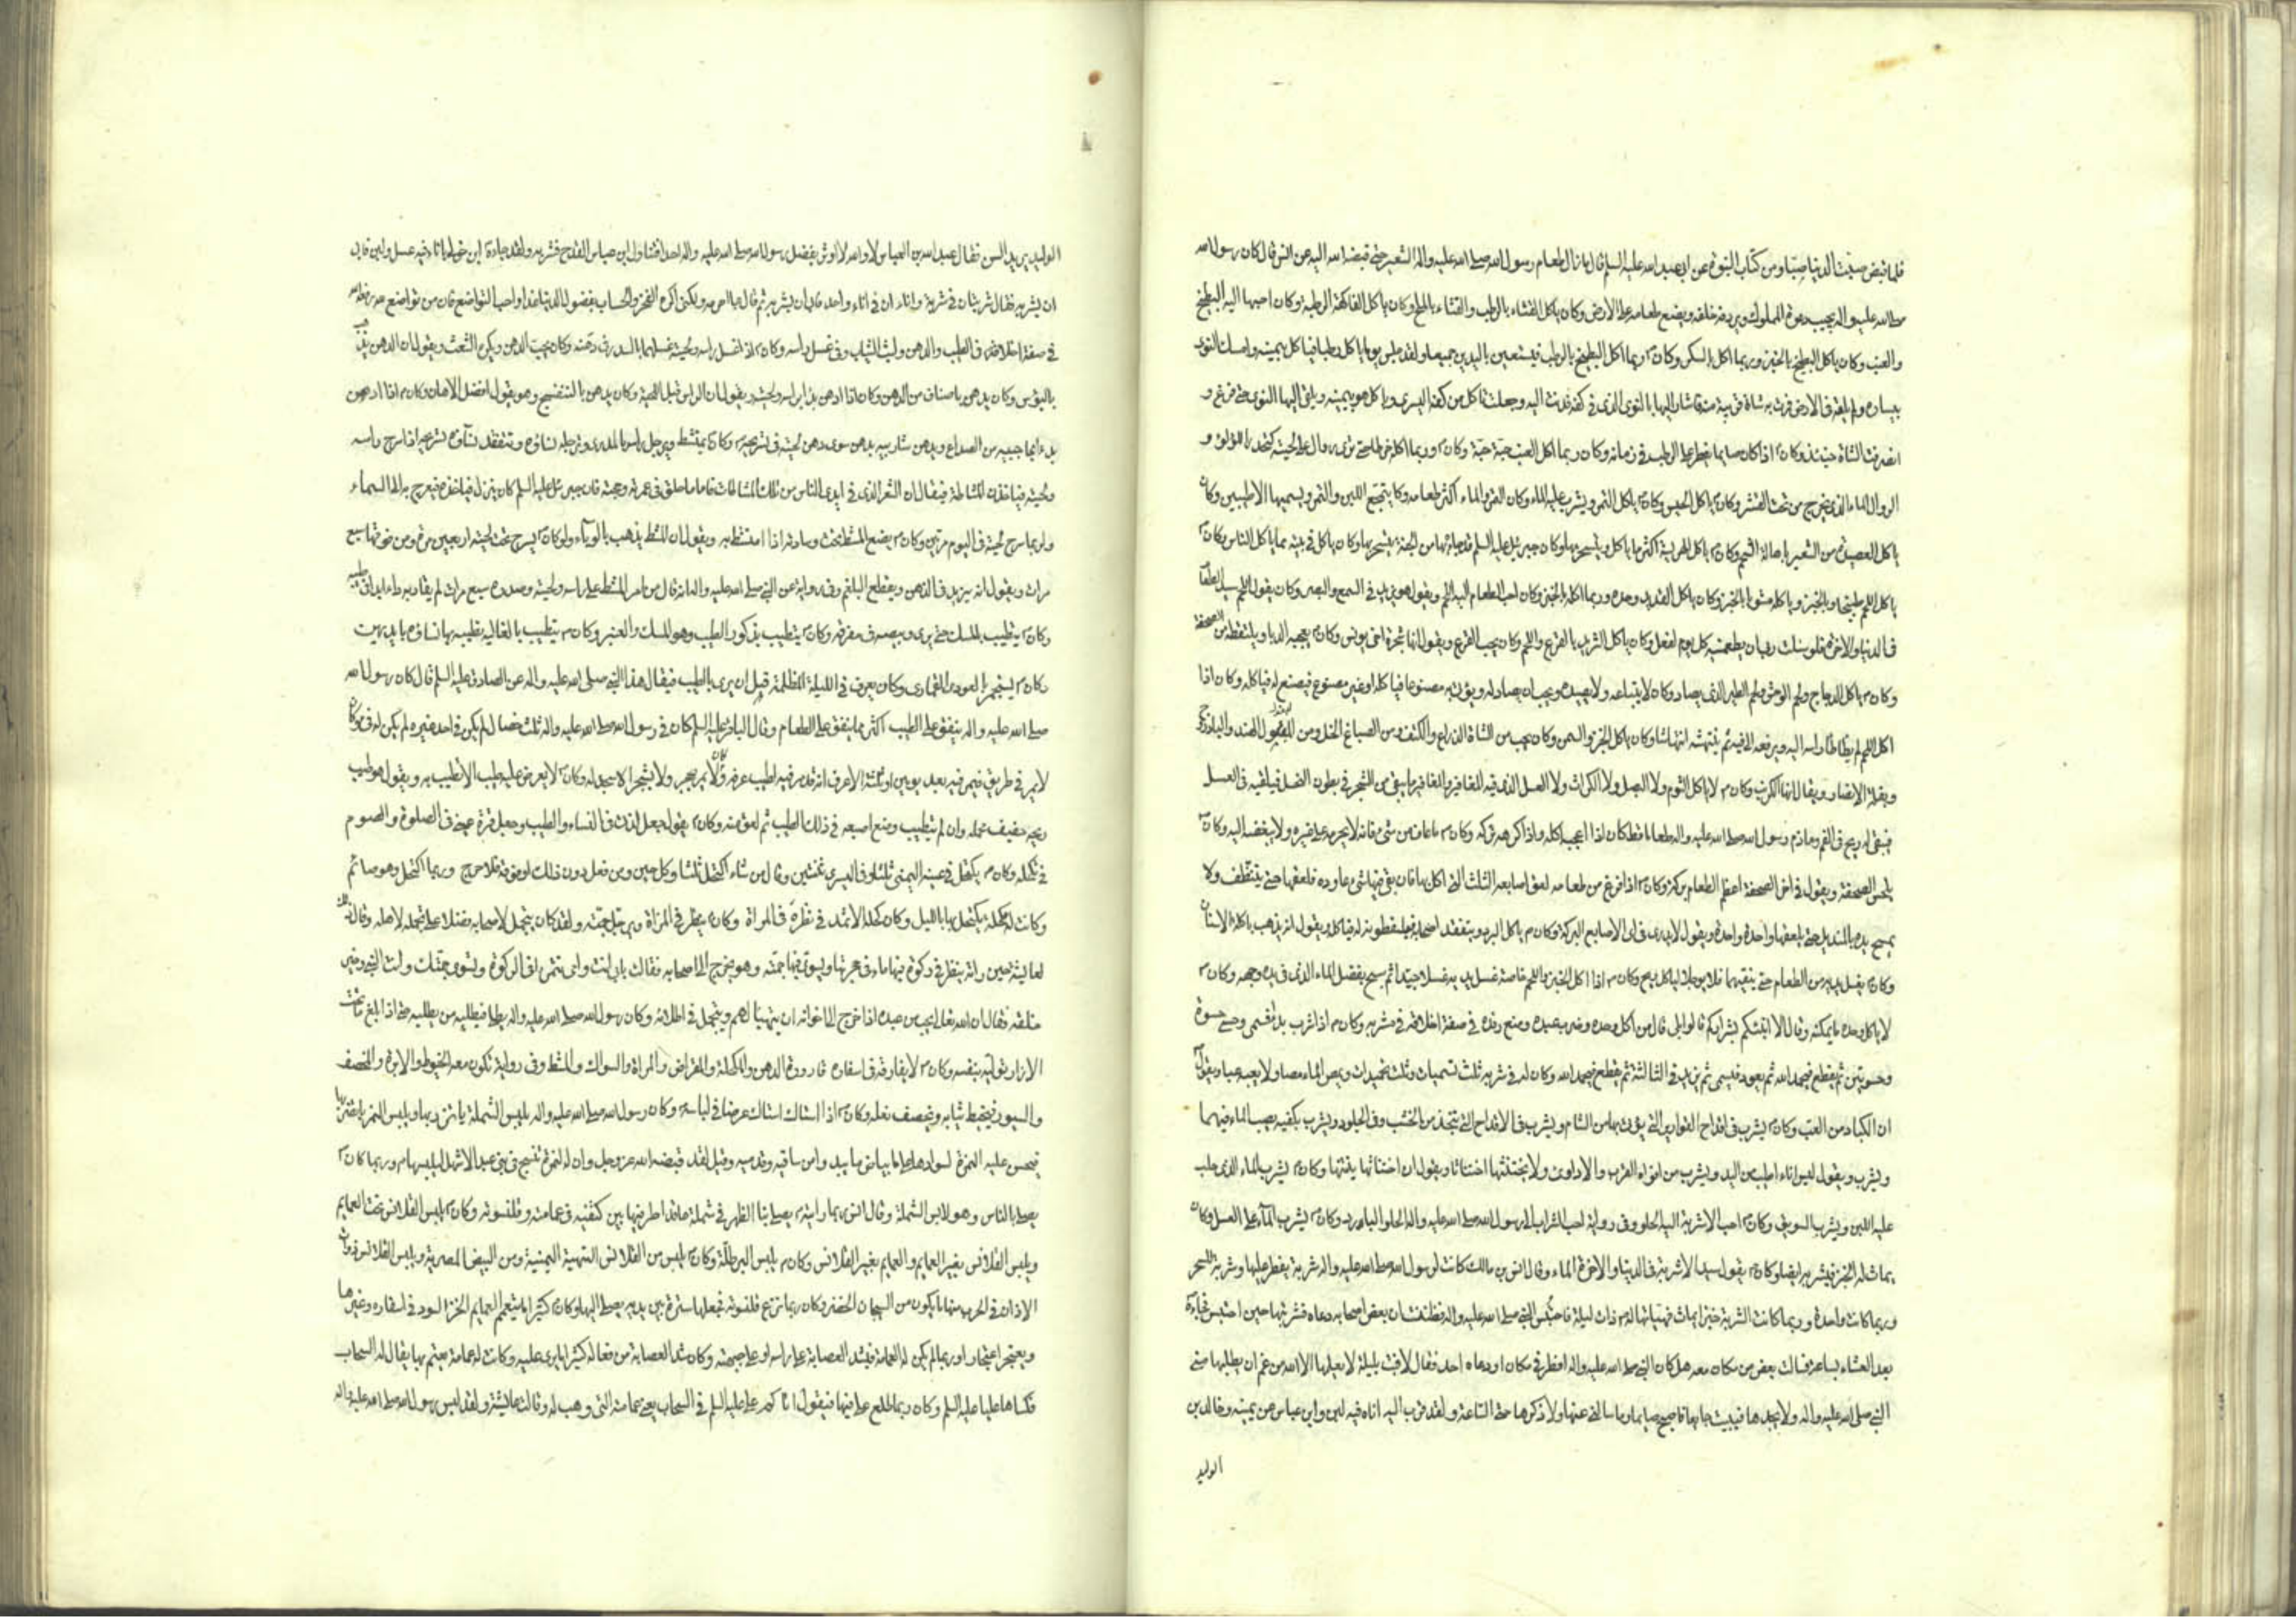 فلما قبض صبت الدنيا صبا ومن كتاب النبوة عن ابي عبد الله عليه السلم قال ما زال طعام رسول الله صلى الله عليه واله الشعير حتى قبضه الله اليه عن انس قال كان رسول الله
صلى الله عليه واله يجيب دعوة المملوك ويردفه خلفه ويضع طعامه على الارض وكان ياكل القثاء بالرطب والقثاء بالملح وكان ياكل الفاكهة الرطبة وكان احبها اليه البطيخ
والعنب وكان ياكل البطيخ بالخبز وربما اكل بالسكر وكان ربما اكل البطيخ بالرطب فيستعين باليدين جميعا ولقد جلس يوما ياكل رطبا فياكل بيمينه وامسك النوى
بيساره ولم يلقه في الارض فمرت به شاة قريبة منه فاشار اليها بالنوى الذي في كفه فدنت اليه وجعلت تاكل من كفه اليسرى وياكل هو بيمينه ويلقي اليها النوى حتى فرغ و
انصرفت الشاة حينئذ وكان اذا كان صايما يفطر على الرطب في زمانه وكان ربما اكل العنب حبة حبة وكان وربما اكله خرطا حتى ترى روال على لحيته كتحدر اللؤلؤ و
الروال الماء الذي يخرج من تحت القشر وكان ياكل الحيس وكان ياكل التمر ويشرب عليه الماء وكان التمر والماء اكثر طعامه وكان يتمجع اللبن والتمر ويسميهما الاطيبين وكان
ياكل العصيدة من الشعير باهالة الشحم وكان ياكل الهريسة اكثر ما ياكل ويتسحر بها وكان جبرئيل عليه السلم قد جاءه بها من الجنة يتسحر بها وكان ياكل في بيته مما ياكل الناس وكان
ياكل اللحم طبيخا بالخبز وياكله مشويا بالخبز وكان ياكل القديد وحده وربما اكله بالخبز وكان احب الطعام اليه اللحم ويقول هو يزيد في السمع والبصر وكان يقول اللحم سيد الطعام
في الدنيا والاخرة ولو سئلت ربي ان يطعمنيه كل يوم لفعل وكان ياكل الثريد بالقرع واللحم وكان يحب القرع ويقول انها شجرة اخي يونس وكان يعجبه الدبا ويلتقطه من الصحفة
وكان ياكل الدجاج ولحم الوحش ولحم الطير الذي يصاد وكان لا يبتاعه ولا يصيده ويحب ان يصاد له ويؤتى به مصنوعا فياكله او غير مصنوع فيصنع له فياكله وكان اذا
اكل اللحم لم يطاطا راسه اليه ويرفعه الى فيه ثم ينتهشه انتهاشا وكان ياكل الخبز والسمن وكان يحب من الشاة الذراع والكتف ومن الصباغ الخل ومن البقول الهندباء والباذروج
وبقلة الانصار ويقال انها الكرنب وكان لا ياكل الثوم ولا البصل ولا الكراث ولا العسل الذي فيه المغافير والمغافير ما يبقى من الشجر في بطون النحل فيلقيه في العسل
فيبقى له ريح في الفم وما ذم رسول الله صلى الله عليه واله طعاما قط كان اذا اعجبه اكله واذا كرهه تركه وكان ما عاف من شئ فانه لا يحرمه على غيره ولا يبغضه اليه وكان
يلحس الصحفة ويقول في اخر الصحفة اعظم الطعام بركة وكان اذا فرغ من طعامه لعق اصابعه الثلث التي اكل بها فان بقي فيها شئ عاوده فلعقها حتى يتنظف ولا
يمسح يده بالمنديل حتى يلعقها واحدة واحدة ويقول لا يدرى في اي الاصابع البركة وكان ياكل البرد ويتفقد اصحابه فيلتقطونه له فياكل ويقول انه يذهب باكلة الاسنان
وكان يغسل يديه من الطعام حتى ينقيهما فلا يوجد لما اكل ريح وكان اذا اكل الخبز واللحم خاصة غسل يديه غسلا جيدا ثم مسح بفضل الماء الذي في يده وجهه وكان
لا ياكل وحده ما يمكنه وقال الا انبئكم بشراركم قالوا بلى قال من اكل وحده وضرب عبده ومنع رفده في صفة اخلاقه في مشربه وكان اذا شرب بدا فسمى وحسى حسوة
وحسوتين ثم يقطع فيحمد الله ثم يعود فيسمى ثم يزيد في الثالثة ثم يقطع فيحمد الله وكان له في شربه ثلث تسميات وثلث تحميدات ويمص الماء مصا ولا يعبه عبا ويقول
ان الكباد من العب وكان يشرب في اقداح القوارير التي يؤتى بها من الشام ويشرب في الاقداح التي يتخذ من الخشب وفي الجلود ويشرب بكفيه يصب الماء فيهما
ويشرب ويقول ليس اناء اطيب من اليد ويشرب من افواه القرب والاداوى ولا يختنثها اختناثا ويقول ان اختناثها ينتنها وكان يشرب الماء الذي حلب
عليه اللبن ويشرب السويق وكان احب الاشربة اليه الحلو وفي رواية احب الشراب الى رسول الله صلى الله عليه واله الحلو البارد وكان يشرب الماء على العسل وكان
يماث له الخبز فيشربه ايضا وكان يقول سيد الاشربة في الدنيا والاخرة الماء وقال انس بن مالك كانت لرسول الله صلى الله عليه واله شربة يفطر عليها وشربة للسحر
وربما كانت واحدة وربما كانت الشربة خبزا يماث فهيأتها له ذات ليلة فاحتبس النبي صلى الله عليه واله فظننت ان بعض اصحابه دعاه فشربتها حين احتبس فجاء
بعد العشاء بساعة فسالت بعض من كان معه هل كان النبي صلى الله عليه واله افطر في مكان او دعاه احد فقال لا فبت بليلة لا يعلمها الا الله من غم ان يطلبها مني
النبي صلى الله عليه واله ولا يجدها فيبيت جايعا فاصبح صايما وما سالني عنها ولا ذكرها حتى الساعة ولقد قرب اليه اناء فيه لبن وابن عباس عن يمينه وخالد بن
الوليد
الوليد يريد السن فقال عبد الله بن العباس لا والله لا اوثر بفضل رسول الله صلى الله عليه واله احدا فتناول ابن عباس القدح فشربه ولقد جاءه ابن خولي باناء فيه عسل ولبن فابى
ان يشربه فقال شربتان في شربة واناءان في اناء واحد فابى ان يشربه ثم قال ما احرمه ولكني اكره الفخر والحساب بفضول الدنيا غدا واحب التواضع فان من تواضع لله رفعه الله
في صفة اخلاقه في الطيب والدهن ولبث الثياب وفي غسل راسه وكان اذا غسل راسه ولحيته غسلهما بالسدر في دهنه وكان يحب الدهن ويكره الشعث ويقول ان الدهن يذهب
بالبؤس وكان يدهن باصناف من الدهن وكان اذا ادهن بدا براسه ولحيته ويقول ان الراس قبل اللحية وكان يدهن بالبنفسج وهو يقول افضل الادهان وكان اذا ادهن
بدء بحاجبيه من الصداع ويدهن شاربيه بدهن سوى دهن لحيته في تسريحه وكان يمتشط ويرجل راسه بالمدرى وترجله نساؤه وتتفقد نساؤه تسريحه اذا سرح راسه
ولحيته فياخذن المشاطة فيقال ان الشعر الذي في ايدي الناس من تلك المشاطات فاما ما حلق في عمرته وحجته فان جبرئيل عليه السلم كان ينزل فياخذه فيعرج به الى السماء
ولربما سرح لحيته في اليوم مرتين وكان يضع المشط تحت وسادته اذا امتشط به ويقول ان المشط يذهب بالوباء وكان يسرح تحت لحيته اربعين مرة ومن فوقها سبع
مرات ويقول انه يزيد في الذهن ويقطع البلغم وفي رواية عن النبي صلى الله عليه واله انه قال من امر المشط على راسه ولحيته وصدره سبع مرات لم يقاربه داء ابدا في طيبه
وكان يتطيب بالمسك حتى يرى وبيصه في مفرقه وكان يتطيب بذكور الطيب وهو المسك والعنبر وكان يتطيب بالغالية تطيبه بها نساؤه بايديهن
وكان يستجمر بالعود القماري وكان يعرف في الليلة المظلمة قبل ان يرى بالطيب فيقال هذا النبي صلى الله عليه واله عن الصادق عليه السلم قال كان رسول الله
صلى الله عليه واله ينفق على الطيب اكثر مما ينفق على الطعام وقال الباقر عليه السلم كان في رسول الله صلى الله عليه واله ثلث خصال لم يكن في احد غيره لم يكن له فئ وكان
لا يمر في طريق فيمر فيه بعد يومين او ثلثة الا عرف انه قد مر فيه لطيب عرفه وكان لا يمر بحجر ولا بشجر الا سجد له وكان لا يعرض عليه طيب الا تطيب به ويقول هو طيب
ريحه خفيف حمله وان لم يتطيب وضع اصبعه في ذلك الطيب ثم لعق منه وكان يقول جعل لذتي في النساء والطيب وجعل قرة عيني في الصلوة والصوم
في تكحله وكان يكتحل في عينه اليمنى ثلثا وفي اليسرى ثنتين وقال من شاء اكتحل ثلثا وكل حين ومن فعل دون ذلك او فوقه فلا حرج وربما اكتحل وهو صائم
وكانت له مكحلة يكتحل بها بالليل وكان كحله الاثمد في نظره في المراة وكان ينظر في المراة ويرجل جمته ولقد كان يتجمل لاصحابه فضلا على تجمله لاهله وقال ذلك
لعايشة حين راته ينظر في ركوة فيها ماء في حجرتها ويسوي فيها جمته وهو يخرج الى اصحابه فقالت بابي انت وامي تتمرى في الركوة وتسوي جمتك وانت النبي وخير
خلقه فقال ان الله تعالى يحب من عبده اذا خرج الى اخوانه ان يتهيا لهم ويتجمل في اطلائه وكان رسول الله صلى الله عليه واله يطلي فيطليه من يطليه حتى اذا بلغ ما تحت
الازار تولاه بنفسه وكان لا يفارقه في اسفاره قارورة الدهن والمكحلة والمقراض والمراة والسواك والمشط وفي رواية تكون معه الخيوط والابرة والمخصف
والسيور فيخيط ثيابه ويخصف نعله وكان اذا استاك استاك عرضا في لباسه وكان رسول الله صلى الله عليه واله يلبس الشملة ياتزر بها ويلبس النمرة ياتزر بها
فيحسن عليه النمرة لسوادها على بياض ما يبدو من ساقيه وقدميه وقيل لقد قبضه الله عز وجل وان له لنمرة تنسج في بني عبد الاشهل ليلبسها وربما كان
يصلي بالناس وهو لابس الشملة وقال انس ربما رايته يصلي بنا الظهر في شملة عاقدا طرفيها بين كتفيه في عمامته وقلنسوته وكان يلبس القلانس تحت العمايم
ويلبس القلانس بغير العمايم والعمايم بغير القلانس وكان يلبس البرطلة وكان يلبس من القلانس اليمنية ومن البيض المصرية ويلبس القلانس ذوات
الاذان في الحرب منها ما يكون من السيجان الخضر وكان ربما نزع قلنسوته فجعلها سترة بين يديه يصلي اليها وكان كثيرا ما يتعمم العمايم الخز السود في اسفاره وغيرها
ويعتجر اعتجارا وربما لم يكن له العمامة فيشد العصابة على راسه او على جبهته وكان شد العصابة من فعاله كثيرا ما يرى عليه وكانت له عمامة يعتم بها يقال له السحاب
فكساها عليا عليه السلم وكان ربما طلع علي فيها فيقول اتاكم علي عليه السلم في السحاب يعني عمامته التي وهب له وقالت عايشة ولقد لبس رسول الله صلى الله عليه واله